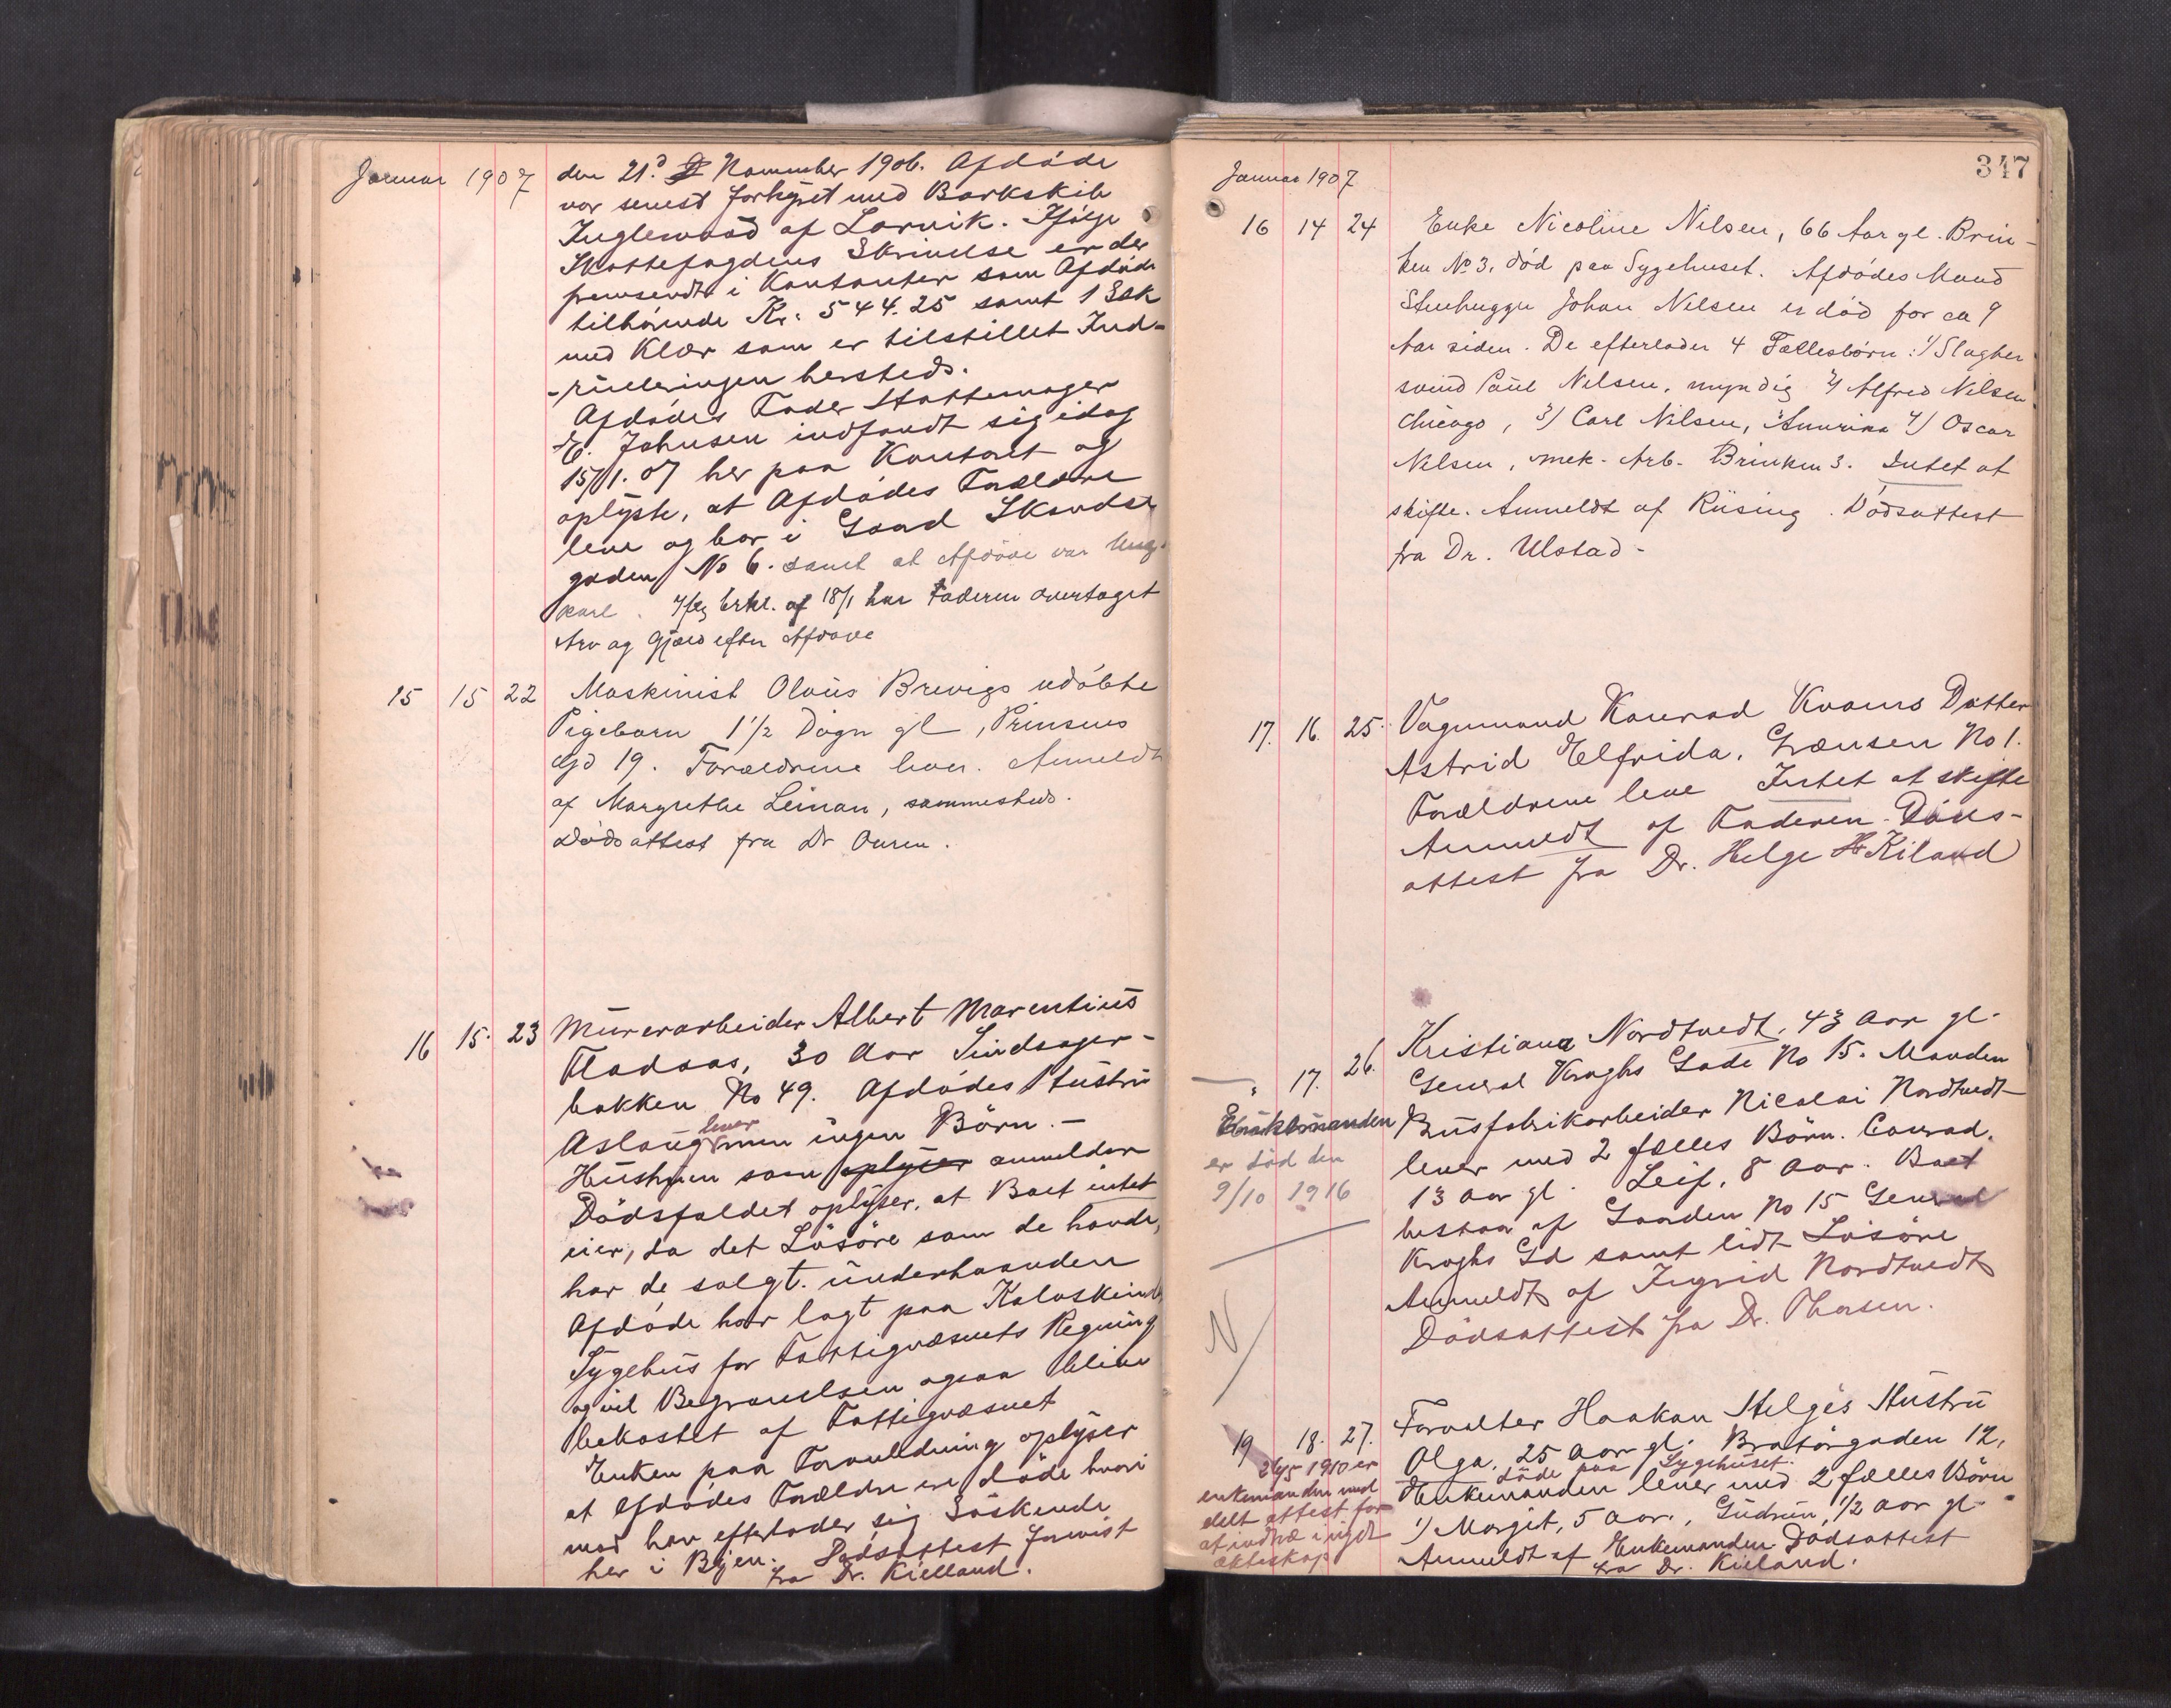 Januar 1907
den 21d November 1906. Afdøde
var senest forhyret med Barkskib
Inglewood af Larvik. Ifølge
Skattefogdens Skrivelse er der
fremsendt i Kontanter som Afdøde
tilhørende Kr. 544.25 samt 1 Sæk
med Klær som er tilstillet Ind-
-rulleringen hersteds.
Afdødes Fader Støttemager
E. Johnsen indfandt sig idag
15/1.07 her paa Kontoret og
oplyste, at Afdødes Forældre
leve og bor i Gaard
gaden No 6. samt at Afdøde var Ung-
karl. Ifølg Erkl. af 18/1 har Faderen overtaget
Arv og Gjæld efter Afdøde
15 15 22 Maskinist Olaus Brevigs udøbte
Pigebarn 1 1/2 Døgn gl, Prinsens
Gd 19. Forældrene lever. Anmeldt
af Margrethe Leinan, sammesteds.
Dødsattest fra Dr Ouren.
16 15. 23 Murerarbeider Albert Marentius
Fladaas, 30 Aar Sindsager-
bakken No 49. Afdødes Hustru
lever
Aslaug men ingen Børn.-
Hustruen som oplyser anmelder
Dødsfaldet oplyser, at Boet intet
eier, da det Løsøre som de havde,
har de solgt. underhaanden
Afdøde har lagt paa Kalvskindets
Sygehus for Fattigvæsnets Regning
og vil Begravelsen ogsaa blive
bekostet af Fattigvæsnet
Enken paa Foranledning oplyser
at Afdødes Forældre ere døde hvori
mod han efterlader sig Søskende
her i Byen. Dødsattest forevist
fra Dr. Kielland.
347
Januar 1907
16 14 24 Enke Nicoline Nilsen, 66 Aar gl. Brin-
ken No 3, død paa Sygehuset. Afdødes Mand
Stenhugger Johan Nilsen er død for ca 9
Aar siden. De efterlader 4 Fællesbørn: 1/ Slagter
svend Paul Nilsen, myndig 2/ Alfred Nilsen
Chicago, 3/ Carl Nilsen, Amerika 4/ Oscar
Nilsen, mek. Arb. Brinken 3. Intet at
skifte. Anmeldt af Riising. Dødsattest
fra Dr. Ulstad-
17. 16. 25. Vognmand Konrad Kvams Datter
Astrid Elfrida, Grænsen No 1.
Forældrene leve Intet at skifte
Anmeldt af Faderen. Døds-
attest fra Dr. Helge H Kiland
" 17. 26. Kristiana Nordtvedt, 43 Aar gl.
General Kroghs Gade No 15. Manden
Brusfabrikarbeider Nicolai Nordtvedt
lever med 2 fælles Børn. Conrad,
13 Aar gl. Leif, 8 Aar. Boet
bestaar af Gaarden No 15 General
Kroghs Gd samt lidt Løsøre
Anmeldt af Ingrid Nordtvedt
Dødsattest fra Dr. Thasen.
Enkemanden
er død den
9/10 1916
N
19 18. 27. Forvalter Haakan Helgès Hustru
Olga, 25 Aar gl. Bratørgaden 12,
døde paa Sygehuset.
Enkemanden lever med 2 fælles Børn
1) Margit, 5 Aar., Gudrun, 1/2 Aar gl.
Anmeldt af Enkemanden Dødsattest
fra Dr. Kieland.
26/5 1910 er
enkemanden med
delt attest for
at indtræ i nyt
ækteskap